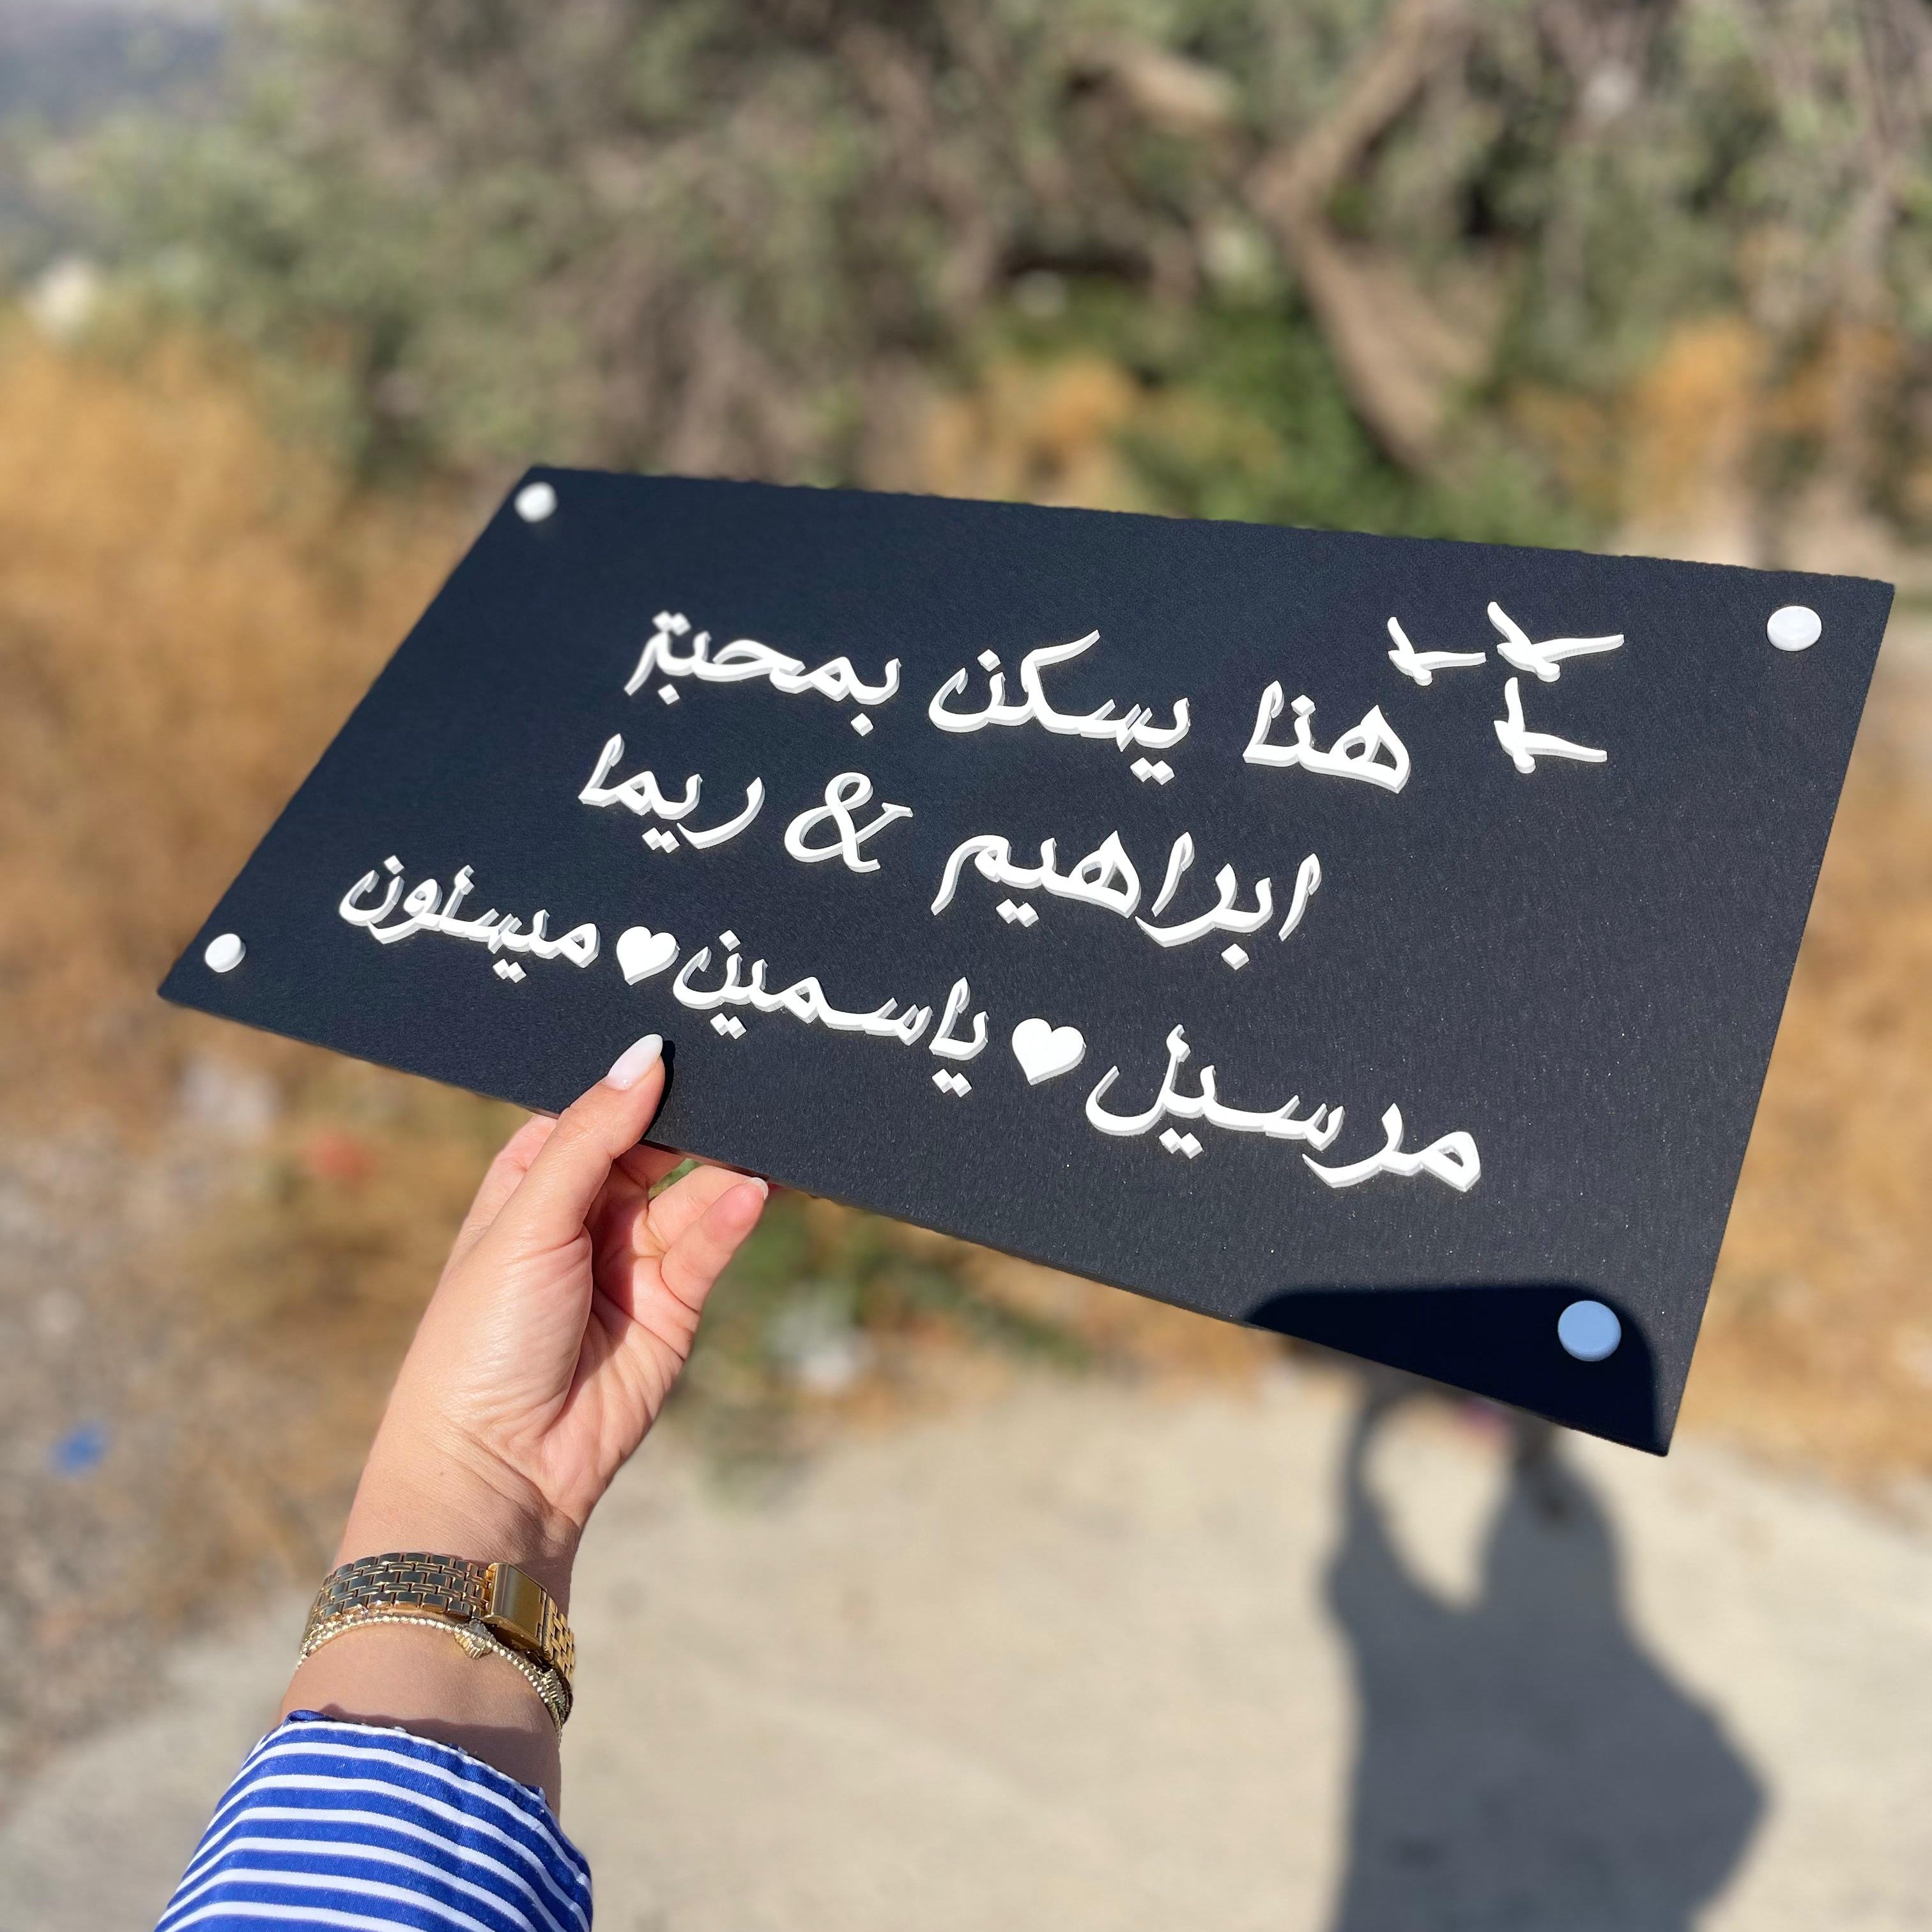 هنا يسكن بمحبة
ابراهيم & ريما
مرسيل♥ياسمين♥ميسلون